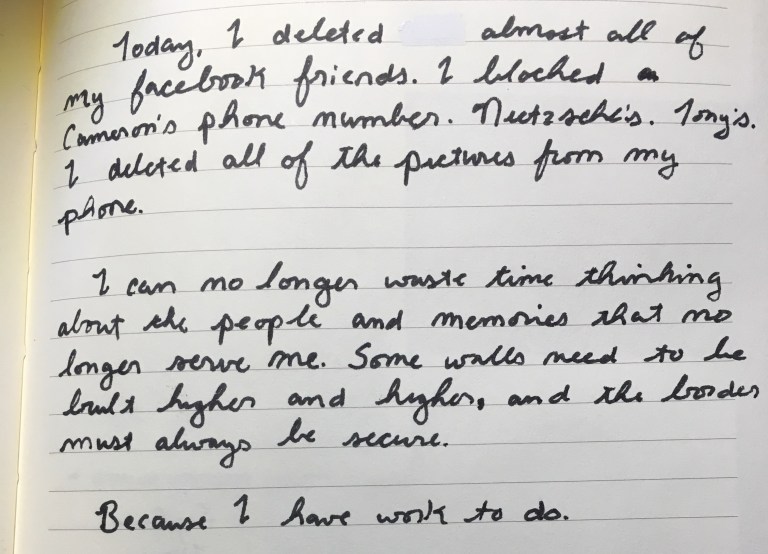 Today, I deleted almost all of
my facebook friends. I blocked
Cameron's phone number. Nietzsche's. Tony's.
I deleted all of the pictures from my
phone.
I can no longer waste time thinking
about the people and memories that no
longer serve me. Some walls need to be
built higher and higher, and the border
must always be secure.
Because I have work to do.